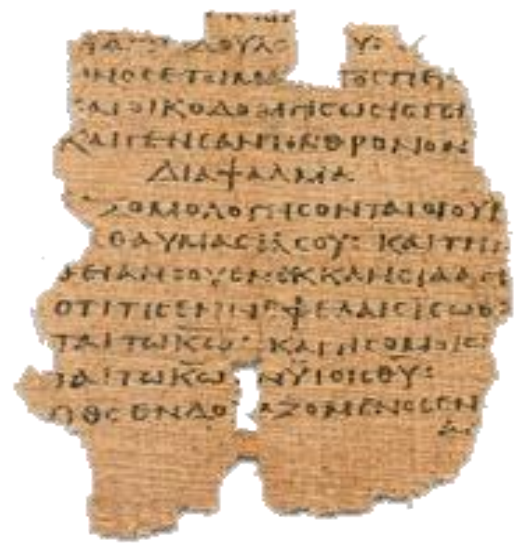 ΔΟΥΛ Υ
ΝΟCΕΤΟΙΜΑ ΤΟCΠΕΡ
ΚΑΙΟΙΚΟΔΟΜΗCΩ
ΚΑΙΓΕΝΕΑΝΤΟΝΘΡΟΝΟΝ
ΔΙΑΨΑΛΜΑ
ΞΟΜΟΛΟΓΗCΟΝΤΑΙΟΙΟΥΡ
ΘΑΥΜΑCΙΑCΟΥ: ΚΑΙΤΗΝ
ΘΕΙΑΝCΟΥΕΝΕΚΚΛΗCΙΑΑΓΙ
ΟΤΙΤΙCΕΝΝΕΦΕΛΑΙCΙCΩΘΗ
ΤΑΙΤΩΚ̅Ω̅: ΚΑΙΤΙCΟΜΟΙΩ
ΤΑΙΤΩΚ̅Ω̅ ΝΥΙΟΙCΘ̅Υ̅:
ΟΘ̅C̅ΕΝΔΟ ΑΖΟΜΕΝΟCΕΝ